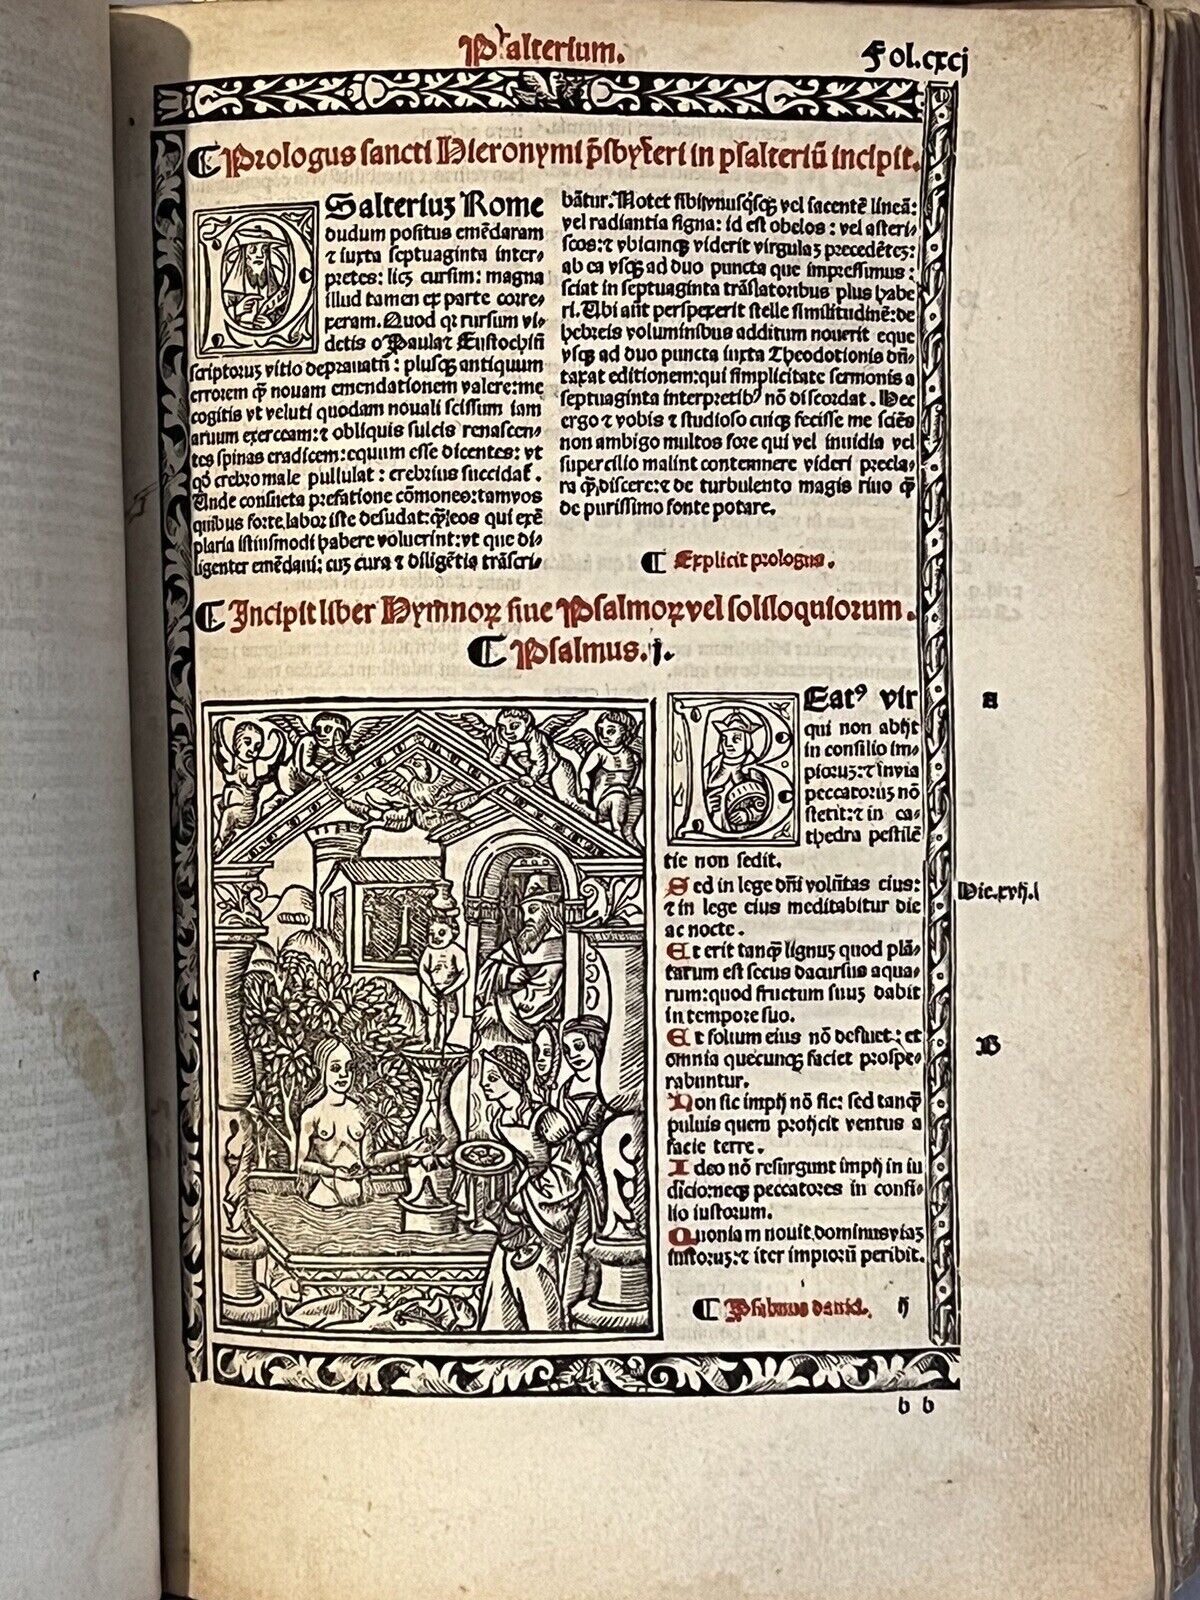 Psalterium.
Fol.cxcj
¶ Prologus sancti Hieronymi p̄sbyteri in psalteriū incipit.
PSalteriuȝ Rome
dudum positus emēdaram
⁊ iuxta septuaginta inter-
pretes: licȝ cursim: magna
illud tamen ex parte corre-
xeram. Quod qꝛ rursum vi-
detis o Paula⁊ Eustochiū
scriptoruȝ vitio deprauatū: plusqȝ antiquum
errorem qꝫ nouam emendationem valere: me
cogitis vt veluti quodam nouali scissum iam
aruum exerceam: ⁊ obliquis sulcis renascen-
tes spinas eradicem: equum esse dicentes: vt
qd̓ crebro male pullulat: crebrius succidat̃.
Unde consueta prefatione cōmoneo: tam vos
quibus forte labor iste desudat: qꝫ eos qui exē
plaria istiusmodi habere voluerint: vt que di-
ligenter emēdaui: cuȝ cura ⁊ diligētia trāscri-
bātur. Notet sibi vnusqsqȝ vel iacentē lineā:
vel radiantia signa: id est obelos: vel asteri-
scos: ⁊ vbicunqȝ viderit virgulaȝ precedētē:
ab ea vsqȝ ad duo puncta que impressimus:
sciat in septuaginta trāslatoribus plus habe
ri. Ubi aūt perspexerit stelle similitudinē: de
hebreis voluminibus additum nouerit eque
vsqȝ ad duo puncta iuxta Theodotionis dū-
taxat editionem: qui simplicitate sermonis a
septuaginta interpretibꝰ nō discordat. Hec
ergo ⁊ vobis ⁊ studioso cuiqȝ fecisse me sciēs
non ambigo multos fore qui vel inuidia vel
supercilio malint contemnere videri precla-
ra qꝫ discere: ⁊ de turbulento magis riuo qꝫ
de purissimo fonte potare.
¶ Explicit prologus.
¶ Incipit liber Hymnoꝝ siue Psalmoꝝ vel soliloquiorum.
¶ Psalmus. j.
BEatꝰ vir
qui non abijt
in consilio im-
pioruȝ: ⁊ in via
peccatoruȝ nō
stetit: ⁊ in ca-
thedra pestilē
tie non sedit.
Sed in lege dñi volūtas eius:
⁊ in lege eius meditabitur die
ac nocte.
Et erit tanqȝ lignuȝ quod plā-
tatum est secus decursus aqua-
rum: quod fructum suuȝ dabit
in tempore suo.
Et folium eius nō defluet: et
omnia quecunqȝ faciet prospe-
rabuntur.
Non sic impij nō sic: sed tanqȝ
puluis quem proijcit ventus a
facie terre.
Ideo nō resurgunt impij in iu
dicio: neqȝ peccatores in consi-
lio iustorum.
Quoniam nouit dominus viaȝ
iustoruȝ: ⁊ iter impioruȝ peribit.
¶ Psalmus dauid. ij
a
Hie.xvij.
B
b b